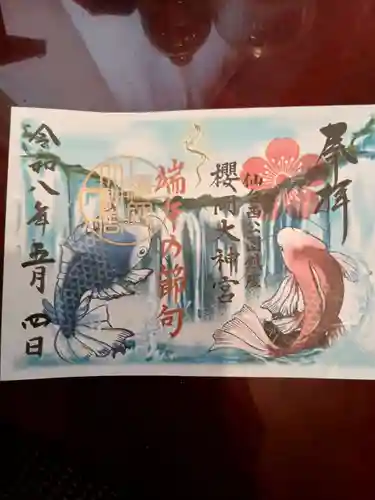 奉拝
仙台西公園鎮座
櫻岡大神宮
端午の節句
令和八年五月四日